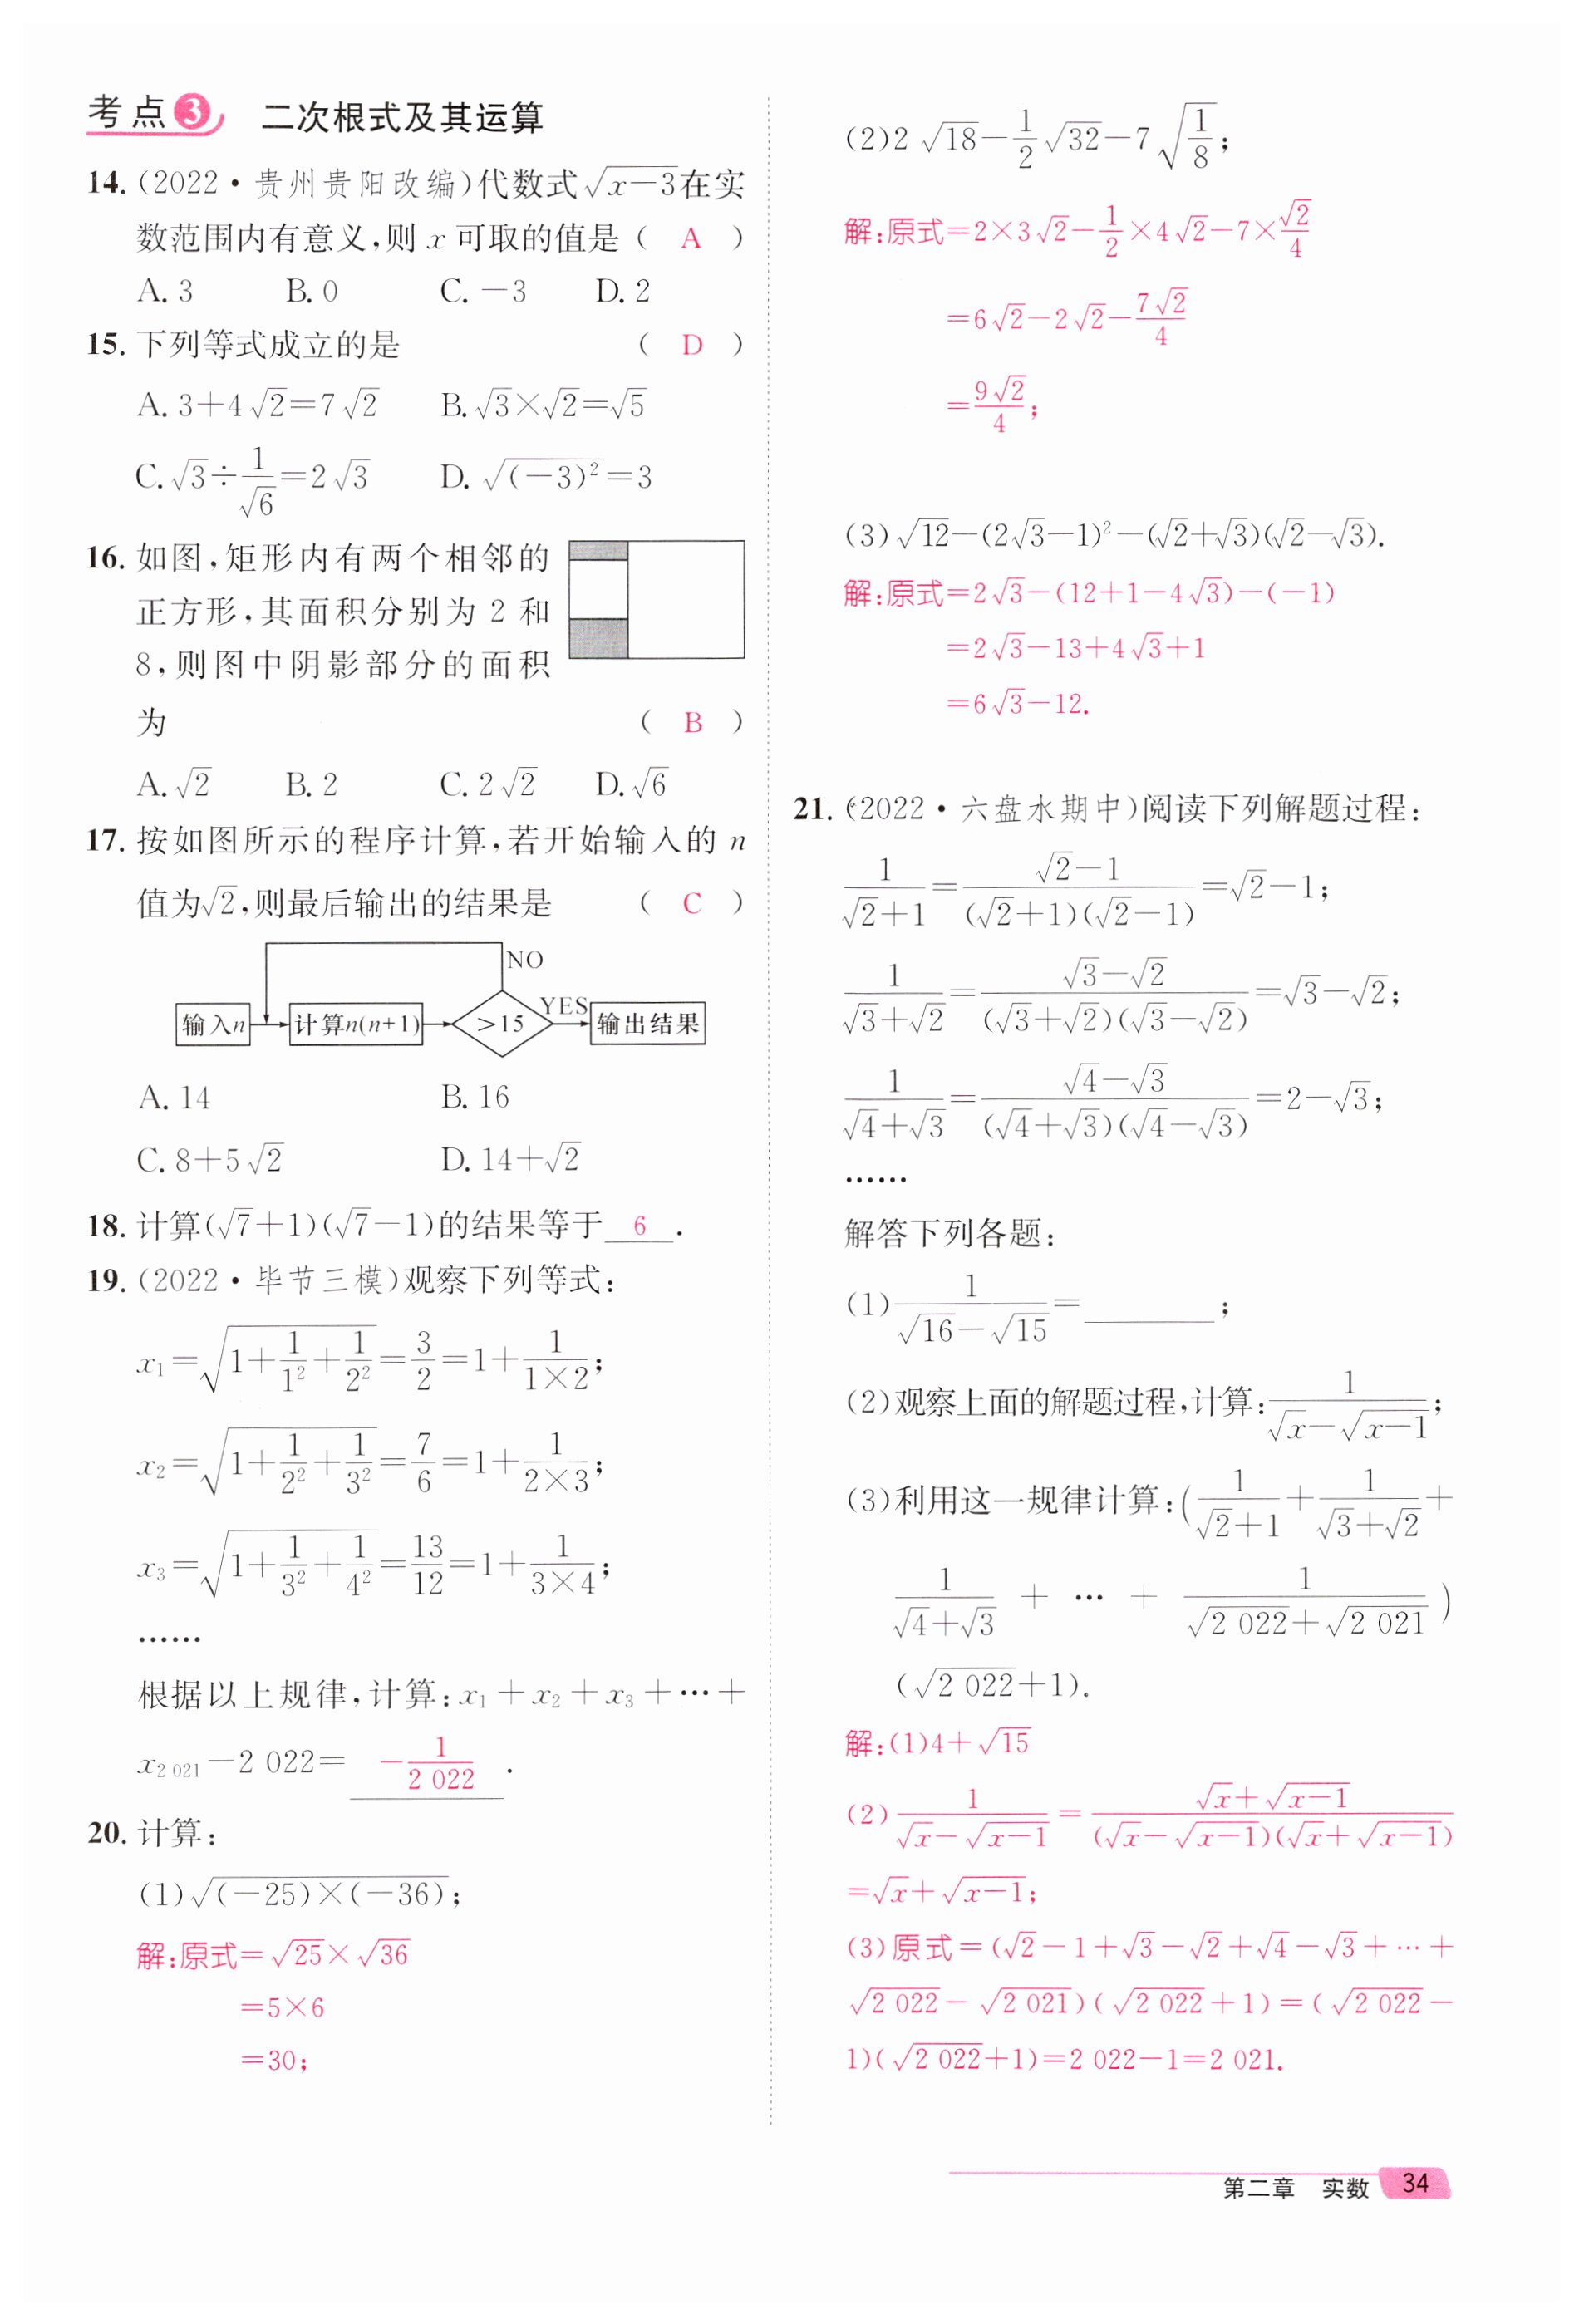 考点3 二次根式及其运算
14.(2022·贵州贵阳改编)代数式√(x-3)在实
数范围内有意义,则 x 可取的值是( A )
A. 3 B. 0 C. -3 D. 2
15. 下列等式成立的是 ( D )
A. 3+4√2=7√2 B. √3×√2=√5
C. √3÷1/√6=2√3 D. √((-3)²)=3
16. 如图,矩形内有两个相邻的
正方形,其面积分别为 2 和
8,则图中阴影部分的面积
为 ( B )
A. √2 B. 2 C. 2√2 D. √6
17. 按如图所示的程序计算,若开始输入的 n
值为√2,则最后输出的结果是 ( C )
NO
输入n 计算n(n+1) >15 YES 输出结果
A. 14 B. 16
C. 8+5√2 D. 14+√2
18. 计算(√7+1)(√7-1)的结果等于 6 .
19.(2022·毕节三模)观察下列等式:
x₁=√(1+1/1²+1/2²)=3/2=1+1/(1×2);
x₂=√(1+1/2²+1/3²)=7/6=1+1/(2×3);
x₃=√(1+1/3²+1/4²)=13/12=1+1/(3×4);
……
根据以上规律,计算:x₁+x₂+x₃+…+
x₂ ₀₂₁-2 022= -1/2 022 .
20. 计算:
(1)√((-25)×(-36));
解:原式=√25×√36
=5×6
=30;
(2)2√18-1/2√32-7√(1/8);
解:原式=2×3√2-1/2×4√2-7×√2/4
=6√2-2√2-7√2/4
=9√2/4;
(3)√12-(2√3-1)²-(√2+√3)(√2-√3).
解:原式=2√3-(12+1-4√3)-(-1)
=2√3-13+4√3+1
=6√3-12.
21.(2022·六盘水期中)阅读下列解题过程:
1/(√2+1)=(√2-1)/((√2+1)(√2-1))=√2-1;
1/(√3+√2)=(√3-√2)/((√3+√2)(√3-√2))=√3-√2;
1/(√4+√3)=(√4-√3)/((√4+√3)(√4-√3))=2-√3;
……
解答下列各题:
(1)1/(√16-√15)=________;
(2)观察上面的解题过程,计算:1/(√x-√(x-1));
(3)利用这一规律计算:(1/(√2+1)+1/(√3+√2)+
1/(√4+√3)+…+1/(√2 022+√2 021))
(√2 022+1).
解:(1)4+√15
(2)1/(√x-√(x-1))=(√x+√(x-1))/((√x-√(x-1))(√x+√(x-1)))
=√x+√(x-1);
(3)原式=(√2-1+√3-√2+√4-√3+…+
√2 022-√2 021)(√2 022+1)=(√2 022-
1)(√2 022+1)=2 022-1=2 021.
第二章 实数 34